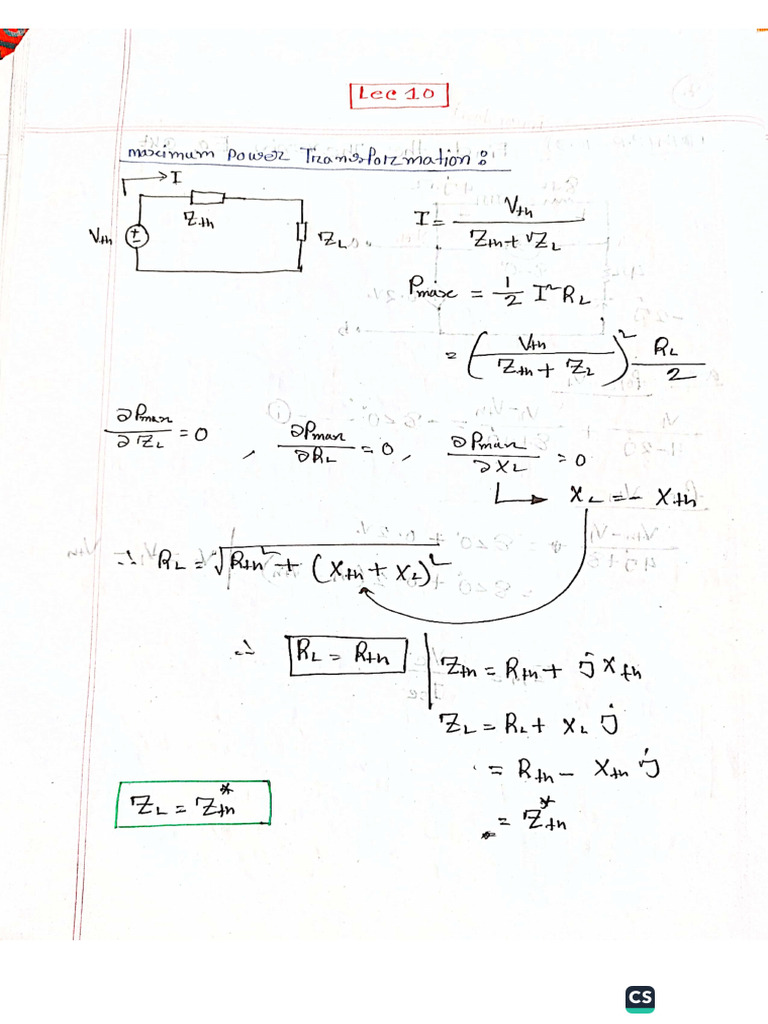 Lec 10
maximum Power Transformation:
→ I
Zth
Vth
ZL
I = Vth / (Zth + ZL)
Pmax = 1/2 I² RL
= (Vth / (Zth + ZL))² RL/2
∂Pmax/∂ZL = 0 , ∂Pmax/∂RL = 0 , ∂Pmax/∂XL = 0
↳ XL = - Xth
∴ RL = √(Rth² + (Xth + XL)²)
∴ RL = Rth
Zth = Rth + j Xth
ZL = RL + XL j
= Rth - Xth j
= Zth*
ZL = Zth*
CS